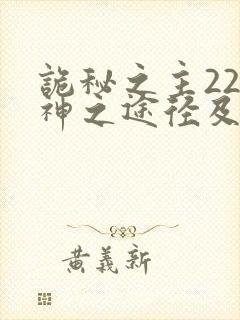 詭秘之主22
神之途径及
黄義新